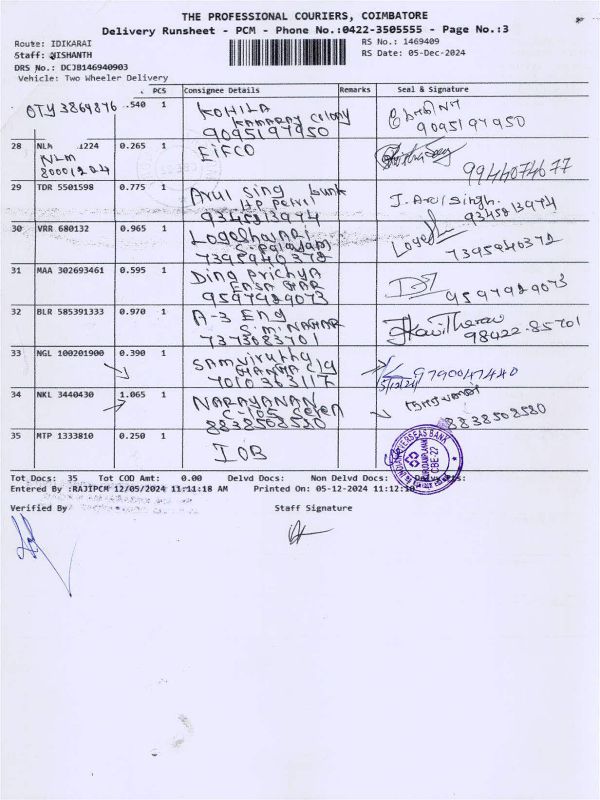 THE PROFESSIONAL COURIERS, COIMBATORE
Delivery Runsheet - PCM - Phone No.:0422-3505555 - Page No.:3
Route: IDIKARAI RS No.: 1469409
Staff: NISHANTH RS Date: 05-Dec-2024
DRS No.: DCJB146940903
Vehicle: Two Wheeler Delivery
PCS Consignee Details Remarks Seal & Signature
OTY 3869876 .540 1 KOHILA
Kamaraj Colony
9095197950 9095197950
28 NLM 1224 0.265 1 EIFCO
NLM 9944074677
29 TDR 5501598 0.775 1 Arul Sing bunk J. Arul Singh.
9345813974 9345813974
30 VRR 680132 0.965 1
7395940372 7395940372
31 MAA 302693461 0.595 1
9597929073 9597929073
32 BLR 585391333 0.970 1 A-3 Eng
S.M. NAGAR
7373083701 98422-85701
33 NGL 100201900 0.390 1
7010363117 5/12/24 9790047440
34 NKL 3440430 1.065 1 NARAYANAN
C-105
8838508580 8838508580
35 MTP 1333810 0.250 1 IOB
INDIAN OVERSEAS BANK
CBE-27
Tot Docs: 35 Tot COD Amt: 0.00 Delvd Docs: Non Delvd Docs:
Entered By :RAJIPCM 12/05/2024 11:11:18 AM Printed On: 05-12-2024 11:12:18
Verified By Staff Signature